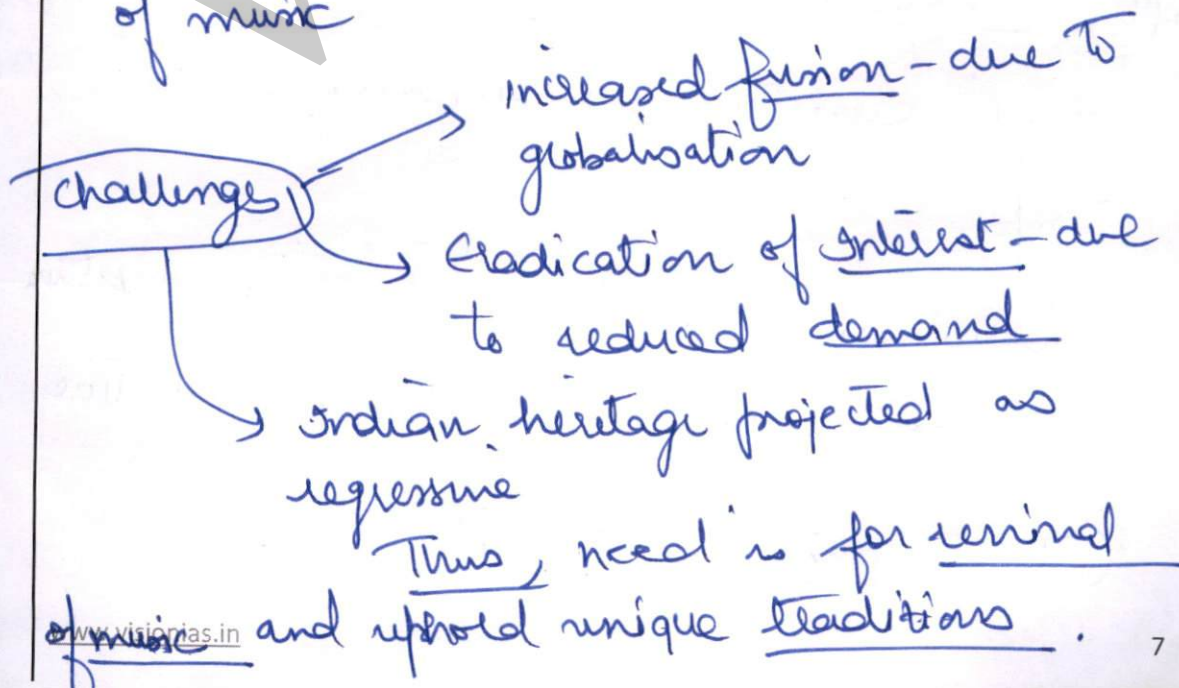 of music
increased fusion - due to
globalisation
challenges
Eradication of Interest - due
to reduced demand
Indian heritage projected as
regressive
Thus, need is for revival
of music and uphold unique traditions.
www.visionias.in
7